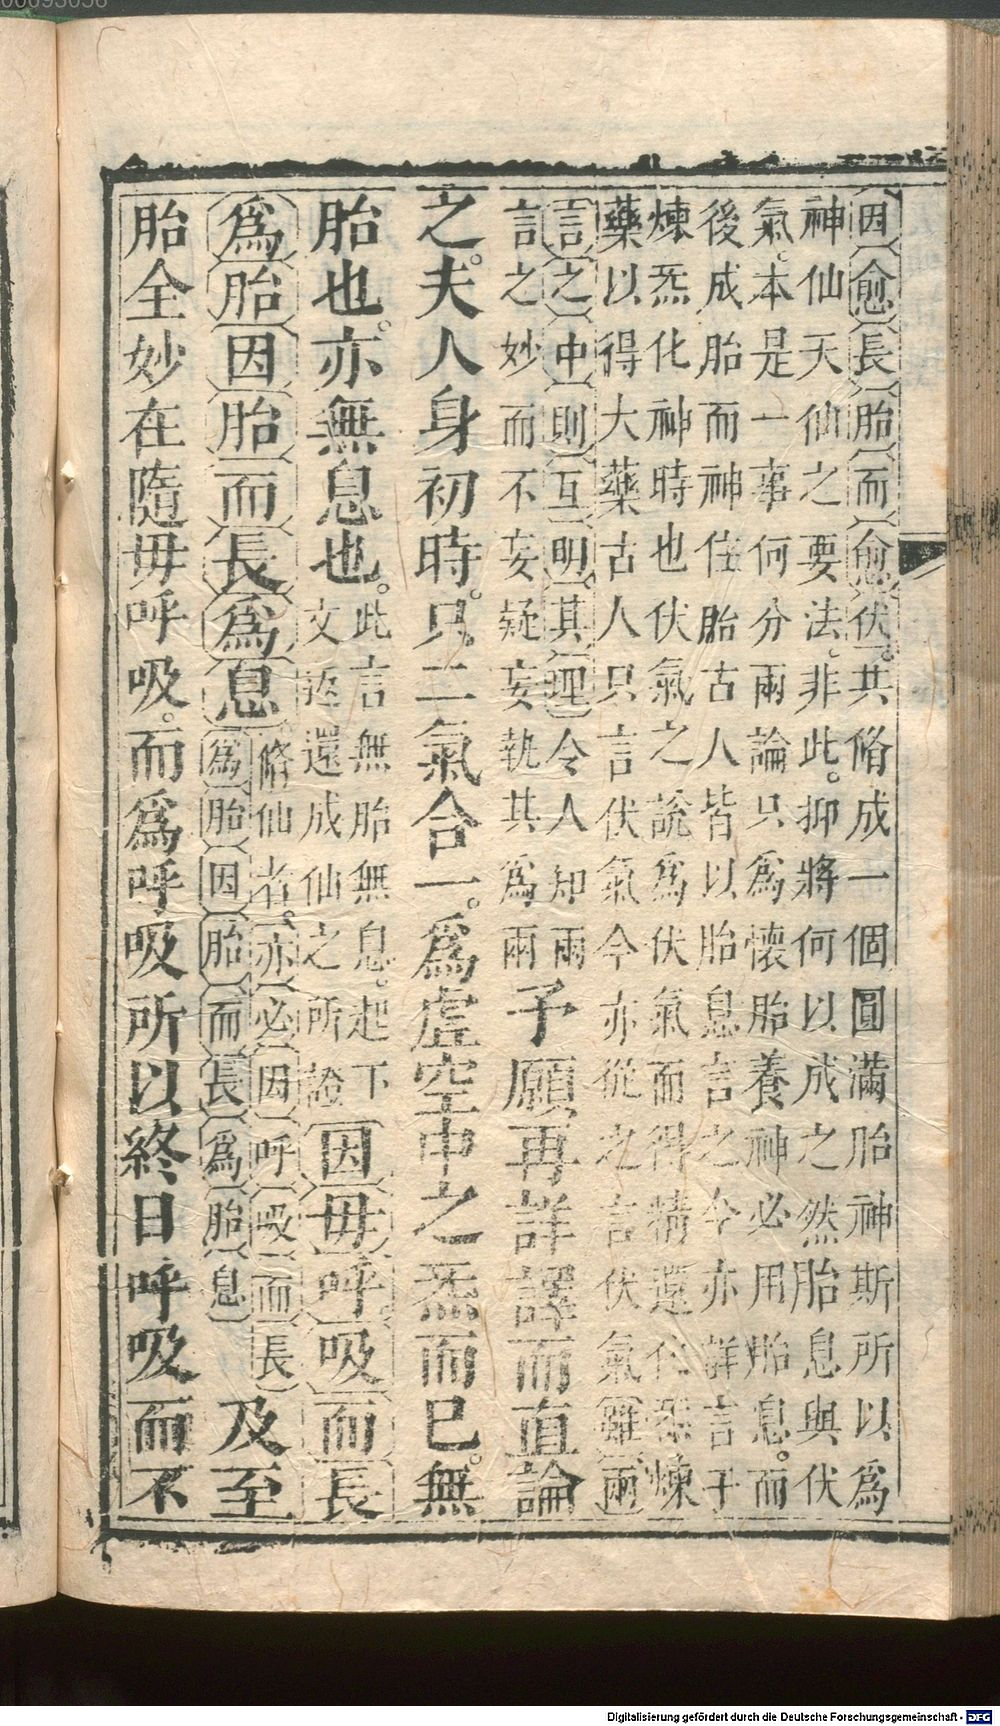 因愈長胎而愈伏。共脩成一個圓滿胎神斯所以為
神仙天仙之要法。非此。抑將何以成之然胎息與伏
氣。本是一事何分兩論只爲懷胎養神必用胎息。而
後成胎而神住胎古人皆以胎息言之今亦詳言子
煉炁化神時也伏氣之說爲伏氣而得精還化炁煉
藥以得大藥古人只言伏氣今亦從之言伏氣雖兩
言之中則互明其理令人知兩
言之妙而不妄疑妄執其爲兩
予願再詳譯而直論
之。夫人身初時。只。二氣合一。爲虛空中之炁而已。無
胎也。亦無息也。
此言無胎無息。起下
文返還成仙之所證
因毋呼吸而長
爲胎因胎而長爲息
脩仙者。亦必因呼吸而長
爲胎因胎而長爲胎息
及至
胎全妙在隨毋呼吸。而爲呼吸所以終日呼吸而不
Digitalisierung gefördert durch die Deutsche Forschungsgemeinschaft - DFG